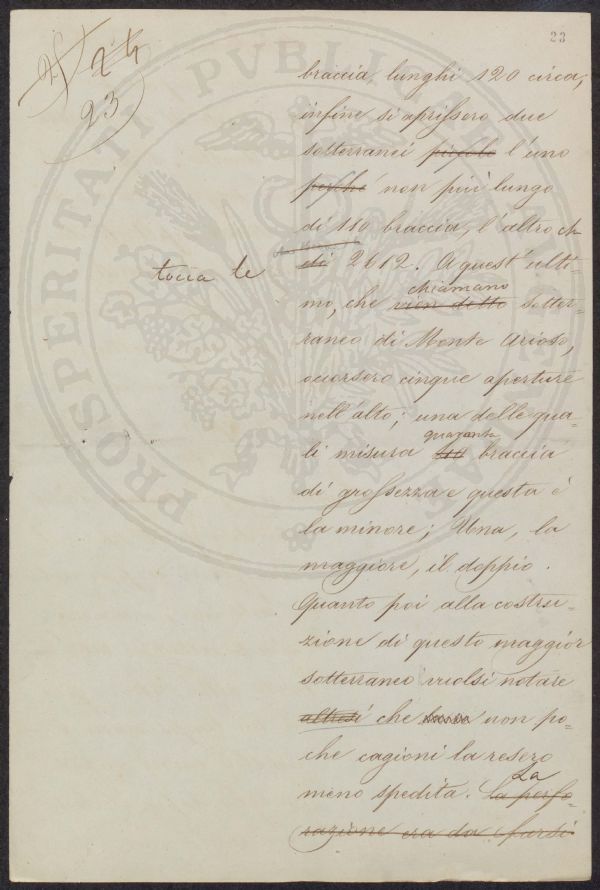 23
24
23
braccia, lunghi 120 circa,
infine si aprissero due
sotterranei piccolo l'uno
perché non più lungo
di 110 braccia, l'altro ch
tocca le
di 2612. A quest'ulti=
chiamano
mo, che vien detto sotter=
raneo di Monte Arioso,
occorsero cinque aperture
nell'alto; una delle qua=
quaranta
li misura braccia
di grossezza e questa è
la minore; Una, la
maggiore, il doppio.
Quanto poi alla costru=
zione di questo maggior
sotterraneo vuolsi notare
altresì che non po=
che cagioni la resero
La
meno spedita. la perfo=
razione era da farsi
PROSPERITATI PVBLICAE